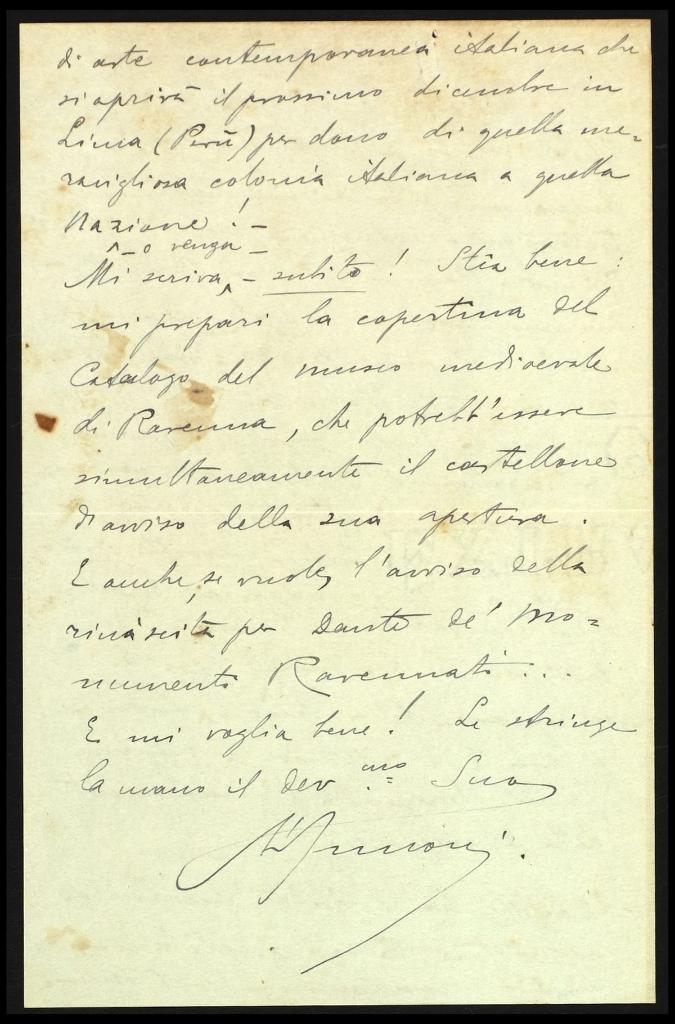 di arte contemporanea italiana che
si aprirà il prossimo dicembre in
Lima (Perù) per dono di quella me=
ravigliosa colonia italiana a quella
Nazione! –
– o venga –
Mi scriva, – subito! Stia bene:
mi prepari la copertina del
Catalogo del museo medioevale
di Ravenna, che potrebb'essere
simultaneamente il cartellone
d'avviso della sua apertura.
E anche, se vuole, l'avviso della
rinascita per Dante de' Mo=
numenti Ravennati...
E mi voglia bene! Le stringe
la mano il dev.mo Suo